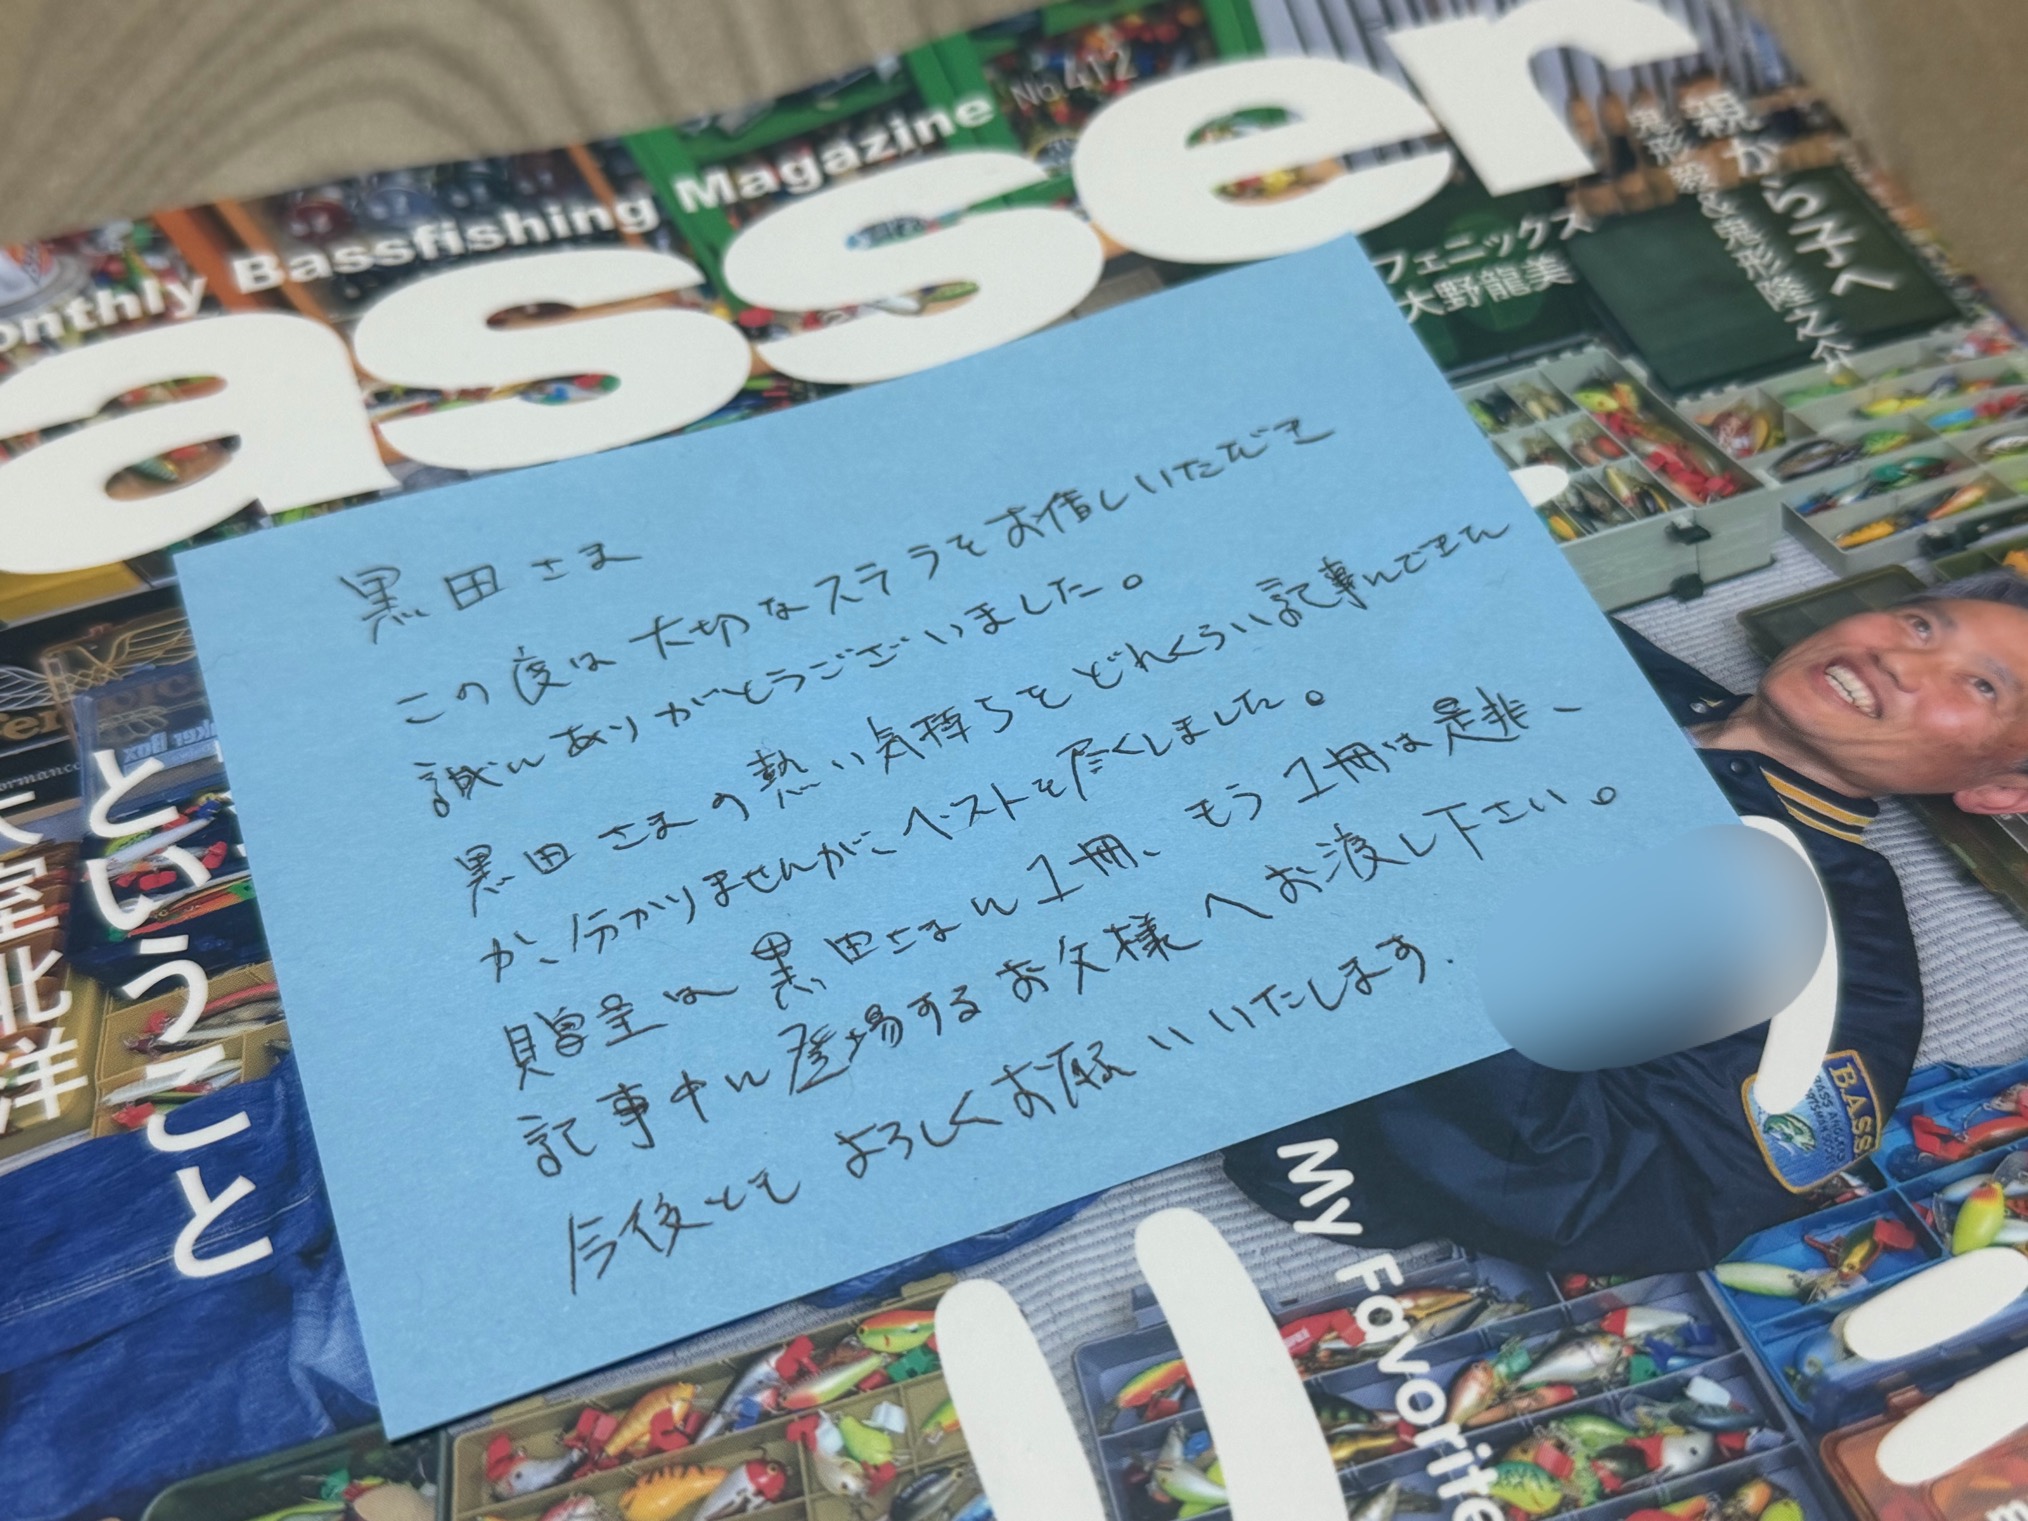 No.412
onthly Bassfishing Magazine
asser
親から子へ
鬼形毅&鬼形隆之介
フェニックス
大野龍美
黒田さま
この度は大切なステラをお借しいただき
誠にありがとうございました。
黒田さまの熱い気持ちをどれくらい記事にできた
か、分かりませんが、ベストを尽くしました。
贈呈は黒田さまに1冊、もう1冊は是非、
記事中に登場するお父様へお渡し下さい。
今後ともよろしくお願いいたします.
ということ
北洋
BASS
My Favorite